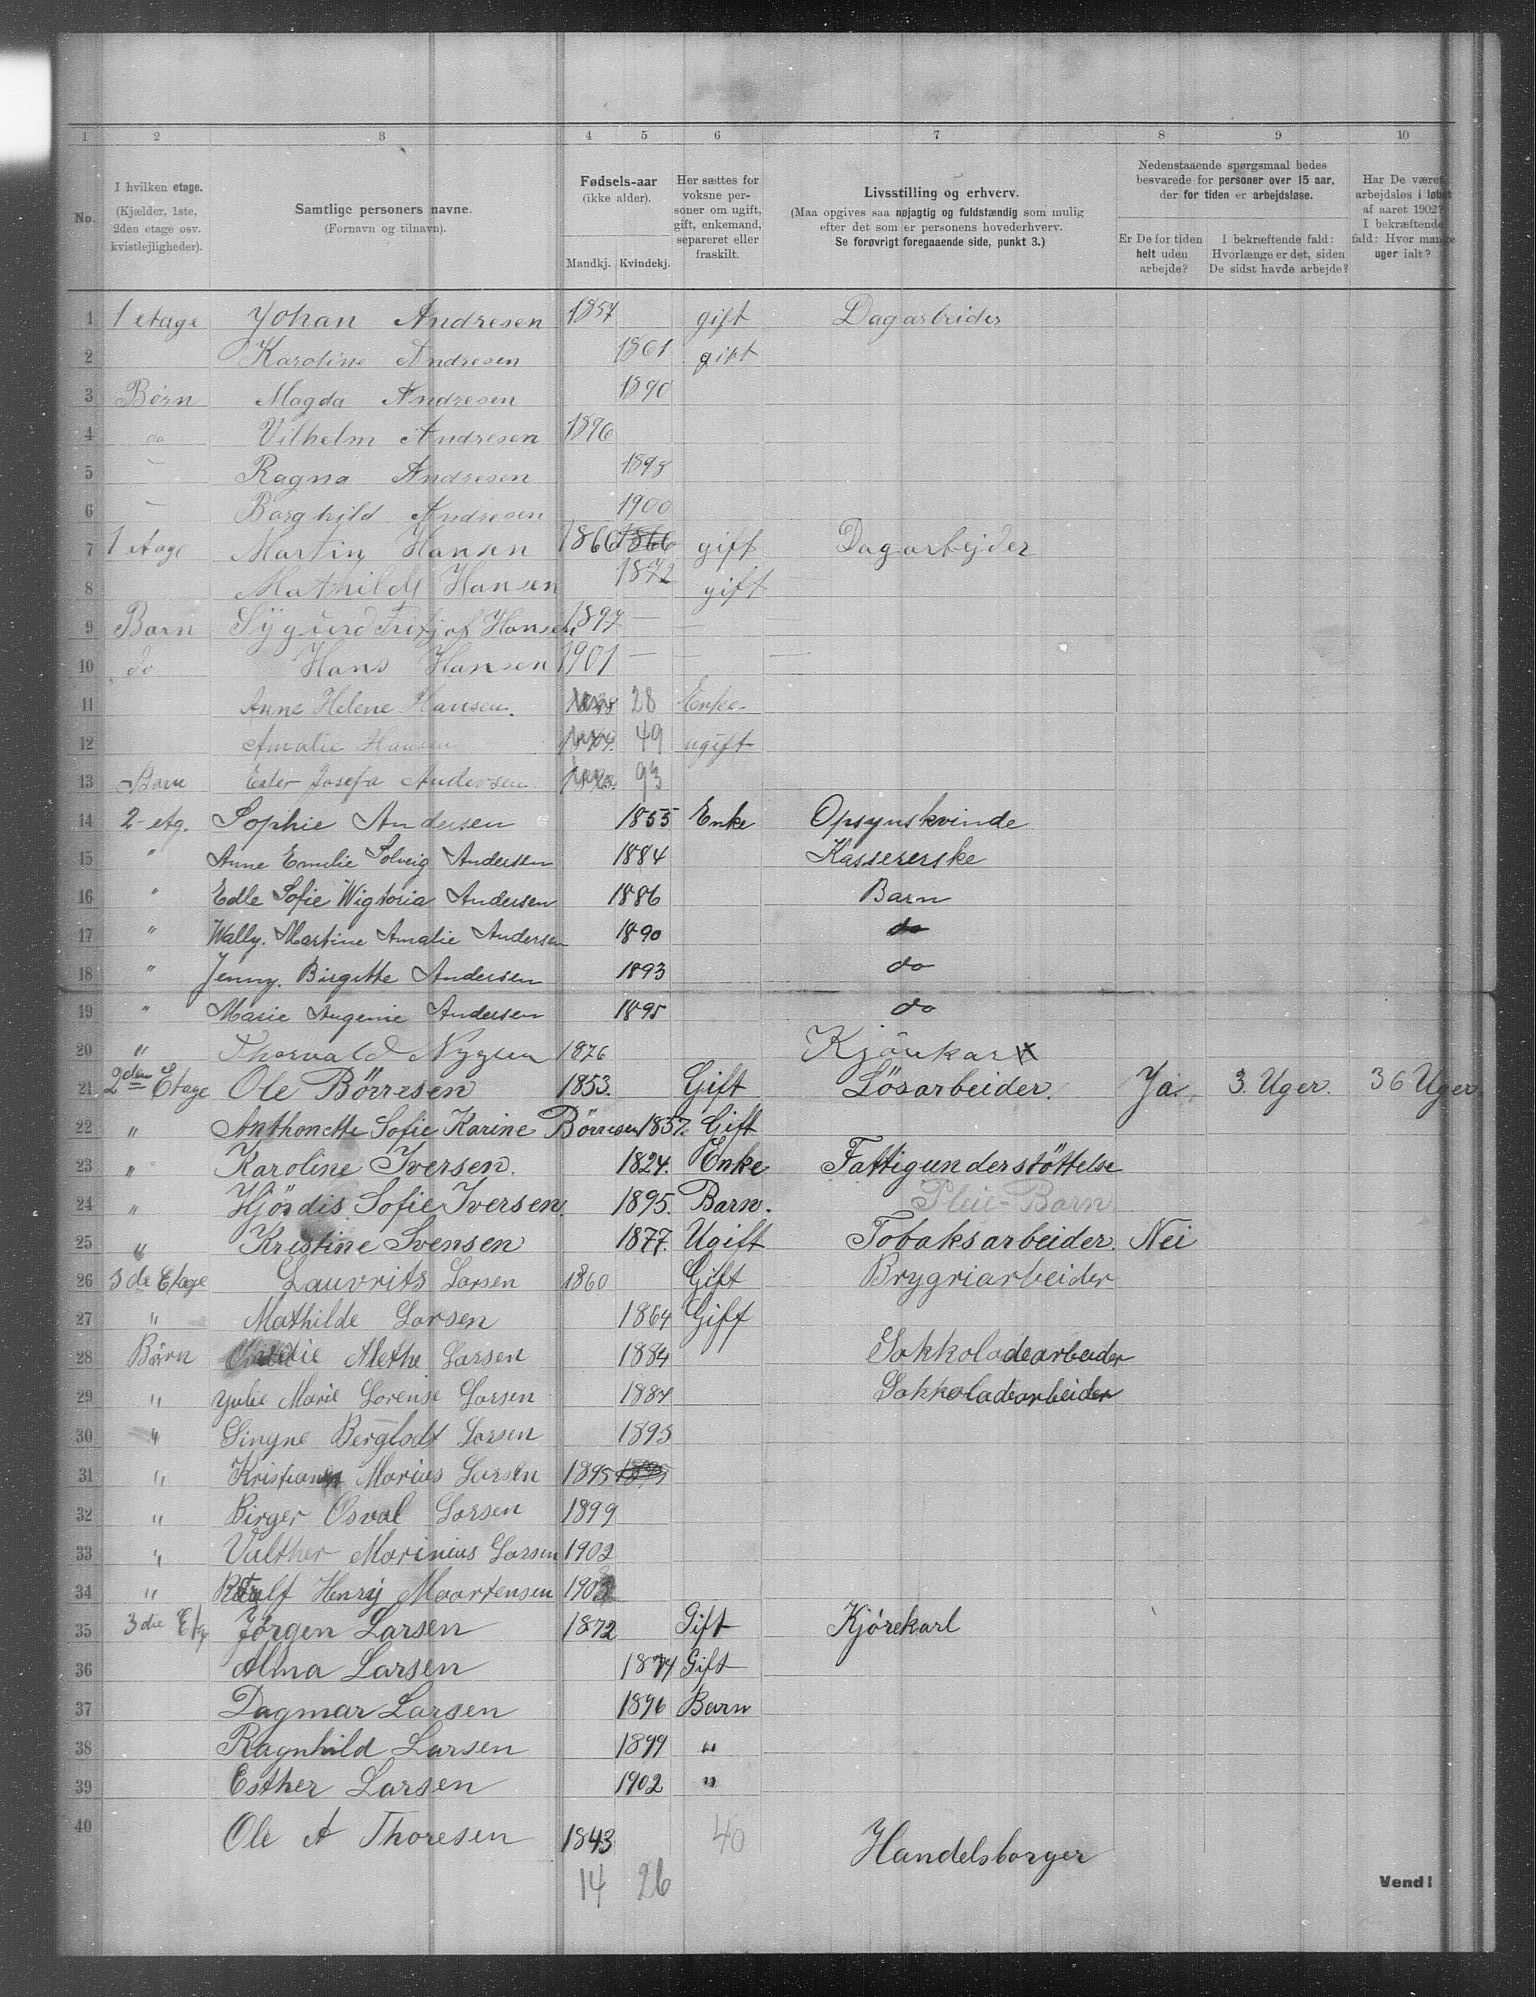 1 2 3 4 5 6 7 8 9 10
No.
I hvilken etage. (Kjælder, 1ste, 2den etage osv. kvistlejligheder).
Samtlige personers navne. (Fornavn og tilnavn).
Fødsels-aar (ikke alder). Mandkj. Kvindekj.
Her sættes for voksne personer om ugift, gift, enkemand, separeret eller fraskilt.
Livsstilling og erhverv. (Maa opgives saa nøjagtig og fuldstændig som mulig efter det som er personens hovederhverv. Se forøvrigt foregaaende side, punkt 3.)
Nedenstaaende spørgsmaal bedes besvarede for personer over 15 aar, der for tiden er arbejdsløse.
Er De for tiden helt uden arbejde?
I bekræftende fald: Hvorlænge er det, siden De sidst havde arbejde?
Har De været arbejdsløs i løbet af aaret 1902? I bekræftende fald: Hvor mange uger ialt?
1 1 etage Johan Andresen 1857 gift Dagarbeider
2 Karoline Andresen 1861 gift
3 Børn Magda Andresen 1890
4 do Vilhelm Andresen 1896
5 — Ragna Andresen 1898
6 — Borghild Andresen 1900
7 1 etage Martin Hansen 1866 1866 gift Dagarbejder
8 Mathilde Hansen 1872 gift
9 Barn Sygurd Fritjof Hansen 1897 — —
10 do Hans Hansen 1901 — — —
11 Anne Helene Hansen. 28 Enke.
12 Amalie Hansen 49 ugift
13 Barn Ester Josefa Andersen 93
14 2 etg. Sophie Andersen 1855 Enke Opsynskvinde
15 " Anne Emilie Solveig Andersen 1884 Kassererske
16 " Edle Sofie Wigtoria Andersen 1886 Barn
17 " Wally. Martine Amalie Andersen 1890 do
18 " Jenny. Birgitte Andersen 1893 do
19 " Marie Augenie Andersen 1895 do
20 " Thorvald Nygren 1876 Kjörekar
21 2den Etage Ole Börresen 1853. Gift Lösarbeider. Ja. 3. Uger. 36 Uger.
22 " Anthonette Sofie Karine Börresen 1857. Gift
23 " Karoline Iversen. 1824. Enke Fattigunderstöttelse
24 " Hjördis Sofie Iversen. 1895. Barn. Pleie-Barn
25 " Kristine Svensen 1877. Ugift Tobaksarbeider. Nei
26 3de Etage Lauvrits Larsen 1860 Gift Brygriarbeider
27 " Mathilde Larsen 1864 Giff
28 Børn Alethe Larsen 1884 Sokkoladearbeider
29 " Yulie Marie Lorense Larsen 1887 Sokkoladearbeider
30 " Singne Berglodt Larsen 1893
31 " Kristian Marius Larsen 1895
32 " Birger Osval Larsen 1899
33 " Valther Marinius Larsen 1902
34 " Henry Maartensen
35 3die Etg Jørgen Larsen 1872 Gift Kjørekarl
36 Alma Larsen 1874 Gift
37 Dagmar Larsen 1896 Barn
38 Ragnhild Larsen 1899 "
39 Esther Larsen 1902 "
40 Ole A Thoresen 1843 40 Handelsborger
14 26
Vend!